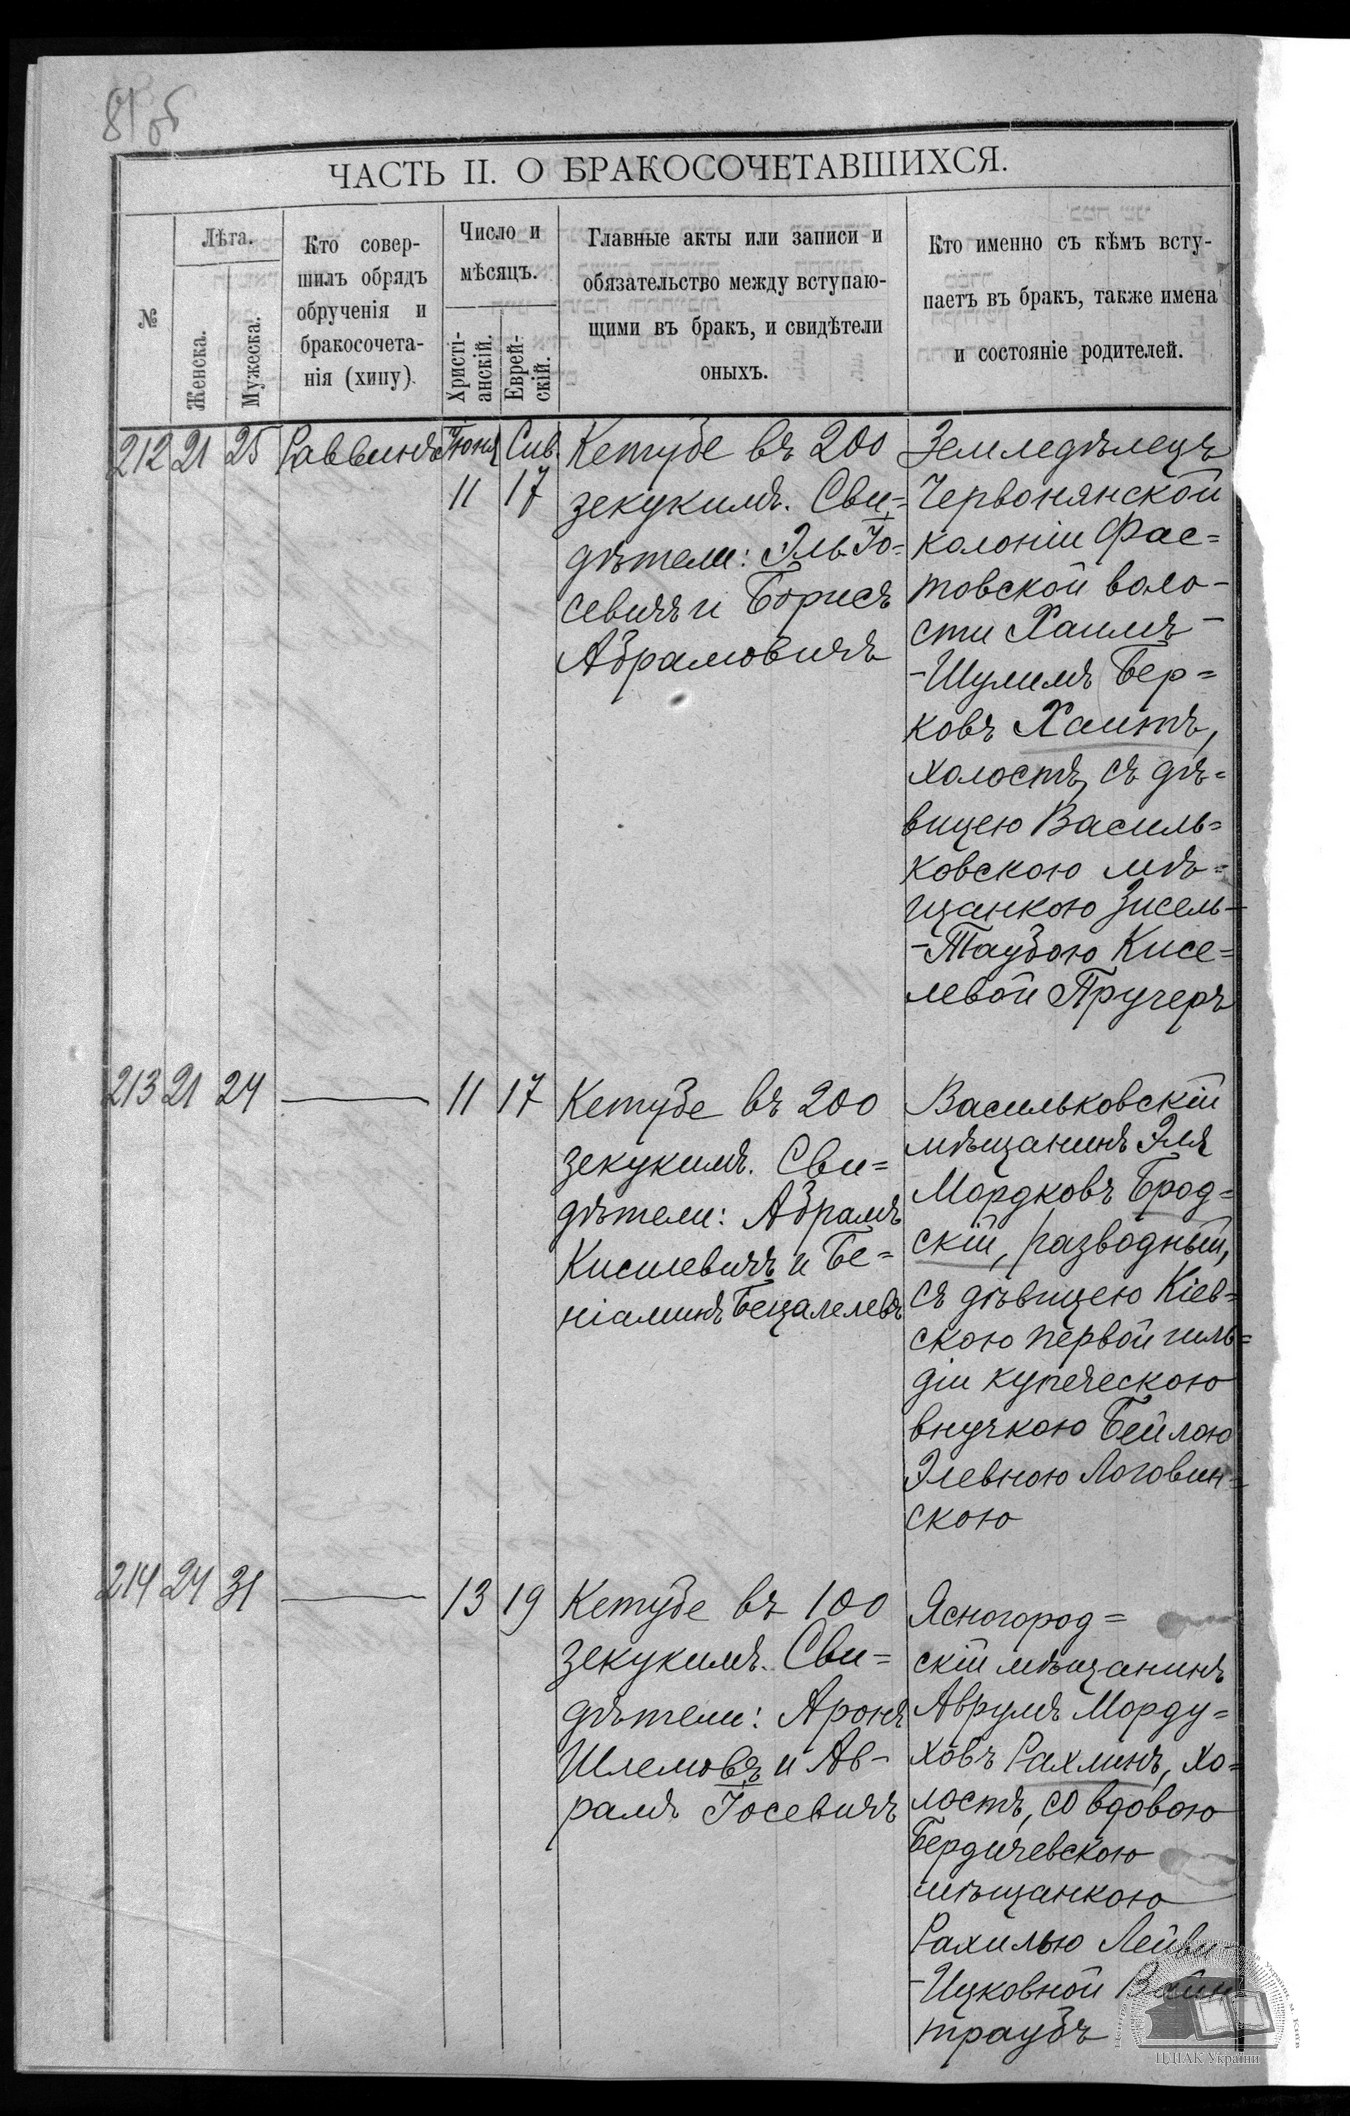 81 об
ЧАСТЬ II. О БРАКОСОЧЕТАВШИХСЯ.
№
Лѣта.
Женска.
Мужеска.
Кто совер-
шилъ обрядъ
обрученія и
бракосочета-
нія (хипу).
Число и
мѣсяцъ.
Христі-
анскій.
Еврей-
скій.
Главные акты или записи и
обязательство между вступаю-
щими въ бракъ, и свидѣтели
оныхъ.
Кто именно съ кѣмъ всту-
паетъ въ бракъ, также имена
и состояніе родителей.
212 21 25 Раввинъ Іюня 11 Сив. 17
Кетубе въ 200
зекукимъ. Сви-
дѣтели: Эль Іо-
севичъ и Борисъ
Абрамовичъ
Земледѣлецъ
Червонянской
колоніи Фас=
товской воло-
сти Хаимъ-
-Шулимъ Бер=
ковъ Хаитъ,
холостъ, съ дѣ-
вицею Василь=
ковскою мѣ=
щанкою Зисель-
-Таубою Кисе=
левой Пручеръ
213 21 24 — 11 17
Кетубе въ 200
зекукимъ. Сви=
дѣтели: Абрамъ
Кисилевичъ и Бе=
ніаминъ Бецалелевъ
Васильковскій
мѣщанинъ Эля
Мордковъ Брод=
скій, разводный,
съ дѣвицею Кіев-
скою первой гиль=
діи купеческою
внучкою Бейлою
Элевною Логовин=
скою
214 24 31 — 13 19
Кетубе въ 100
зекукимъ. Сви=
дѣтели: Аронъ
Шлемовъ и Ав-
рамъ Іосевичъ
Ясногород=
скій мѣщанинъ
Аврумъ Морду=
ховъ Рахлинъ, хо=
лостъ, со вдовою
Бердичевскою
мѣщанкою
Рахилью Лейви-
-Ицковной Вайн-
траубъ
ЦДІАК України